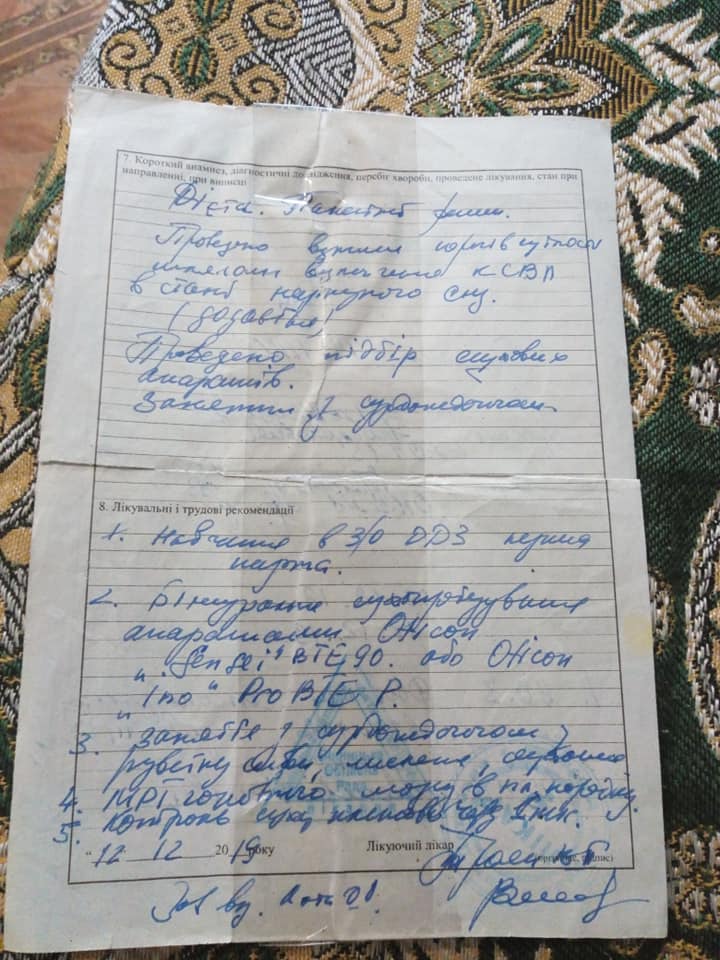 7. Короткий анамнез, діагностичні дослідження, перебіг хвороби, проведене лікування, стан при
направленні, при виписці
Дієта.
Проведено
КСВП
в стані сну.
(додається)
Проведено підбір слухових
апаратів.
Заняття з сурдопедагогом
8. Лікувальні і трудові рекомендації
1. Навчання в З/О ДДЗ перша
парта.
2. Бінауральне слухопротезування
апаратами Oticon
"Sensei" BTE 90. або Oticon
"Ino" Pro BTE P.
3. Заняття з сурдопедагогом
розвитку мислення,
4. МРТ головного мозку в пл. порядку.
5. Контроль слуху через
" 12 12 2019 року Лікуючий лікар
(прізвище, підпис)
Зав від.